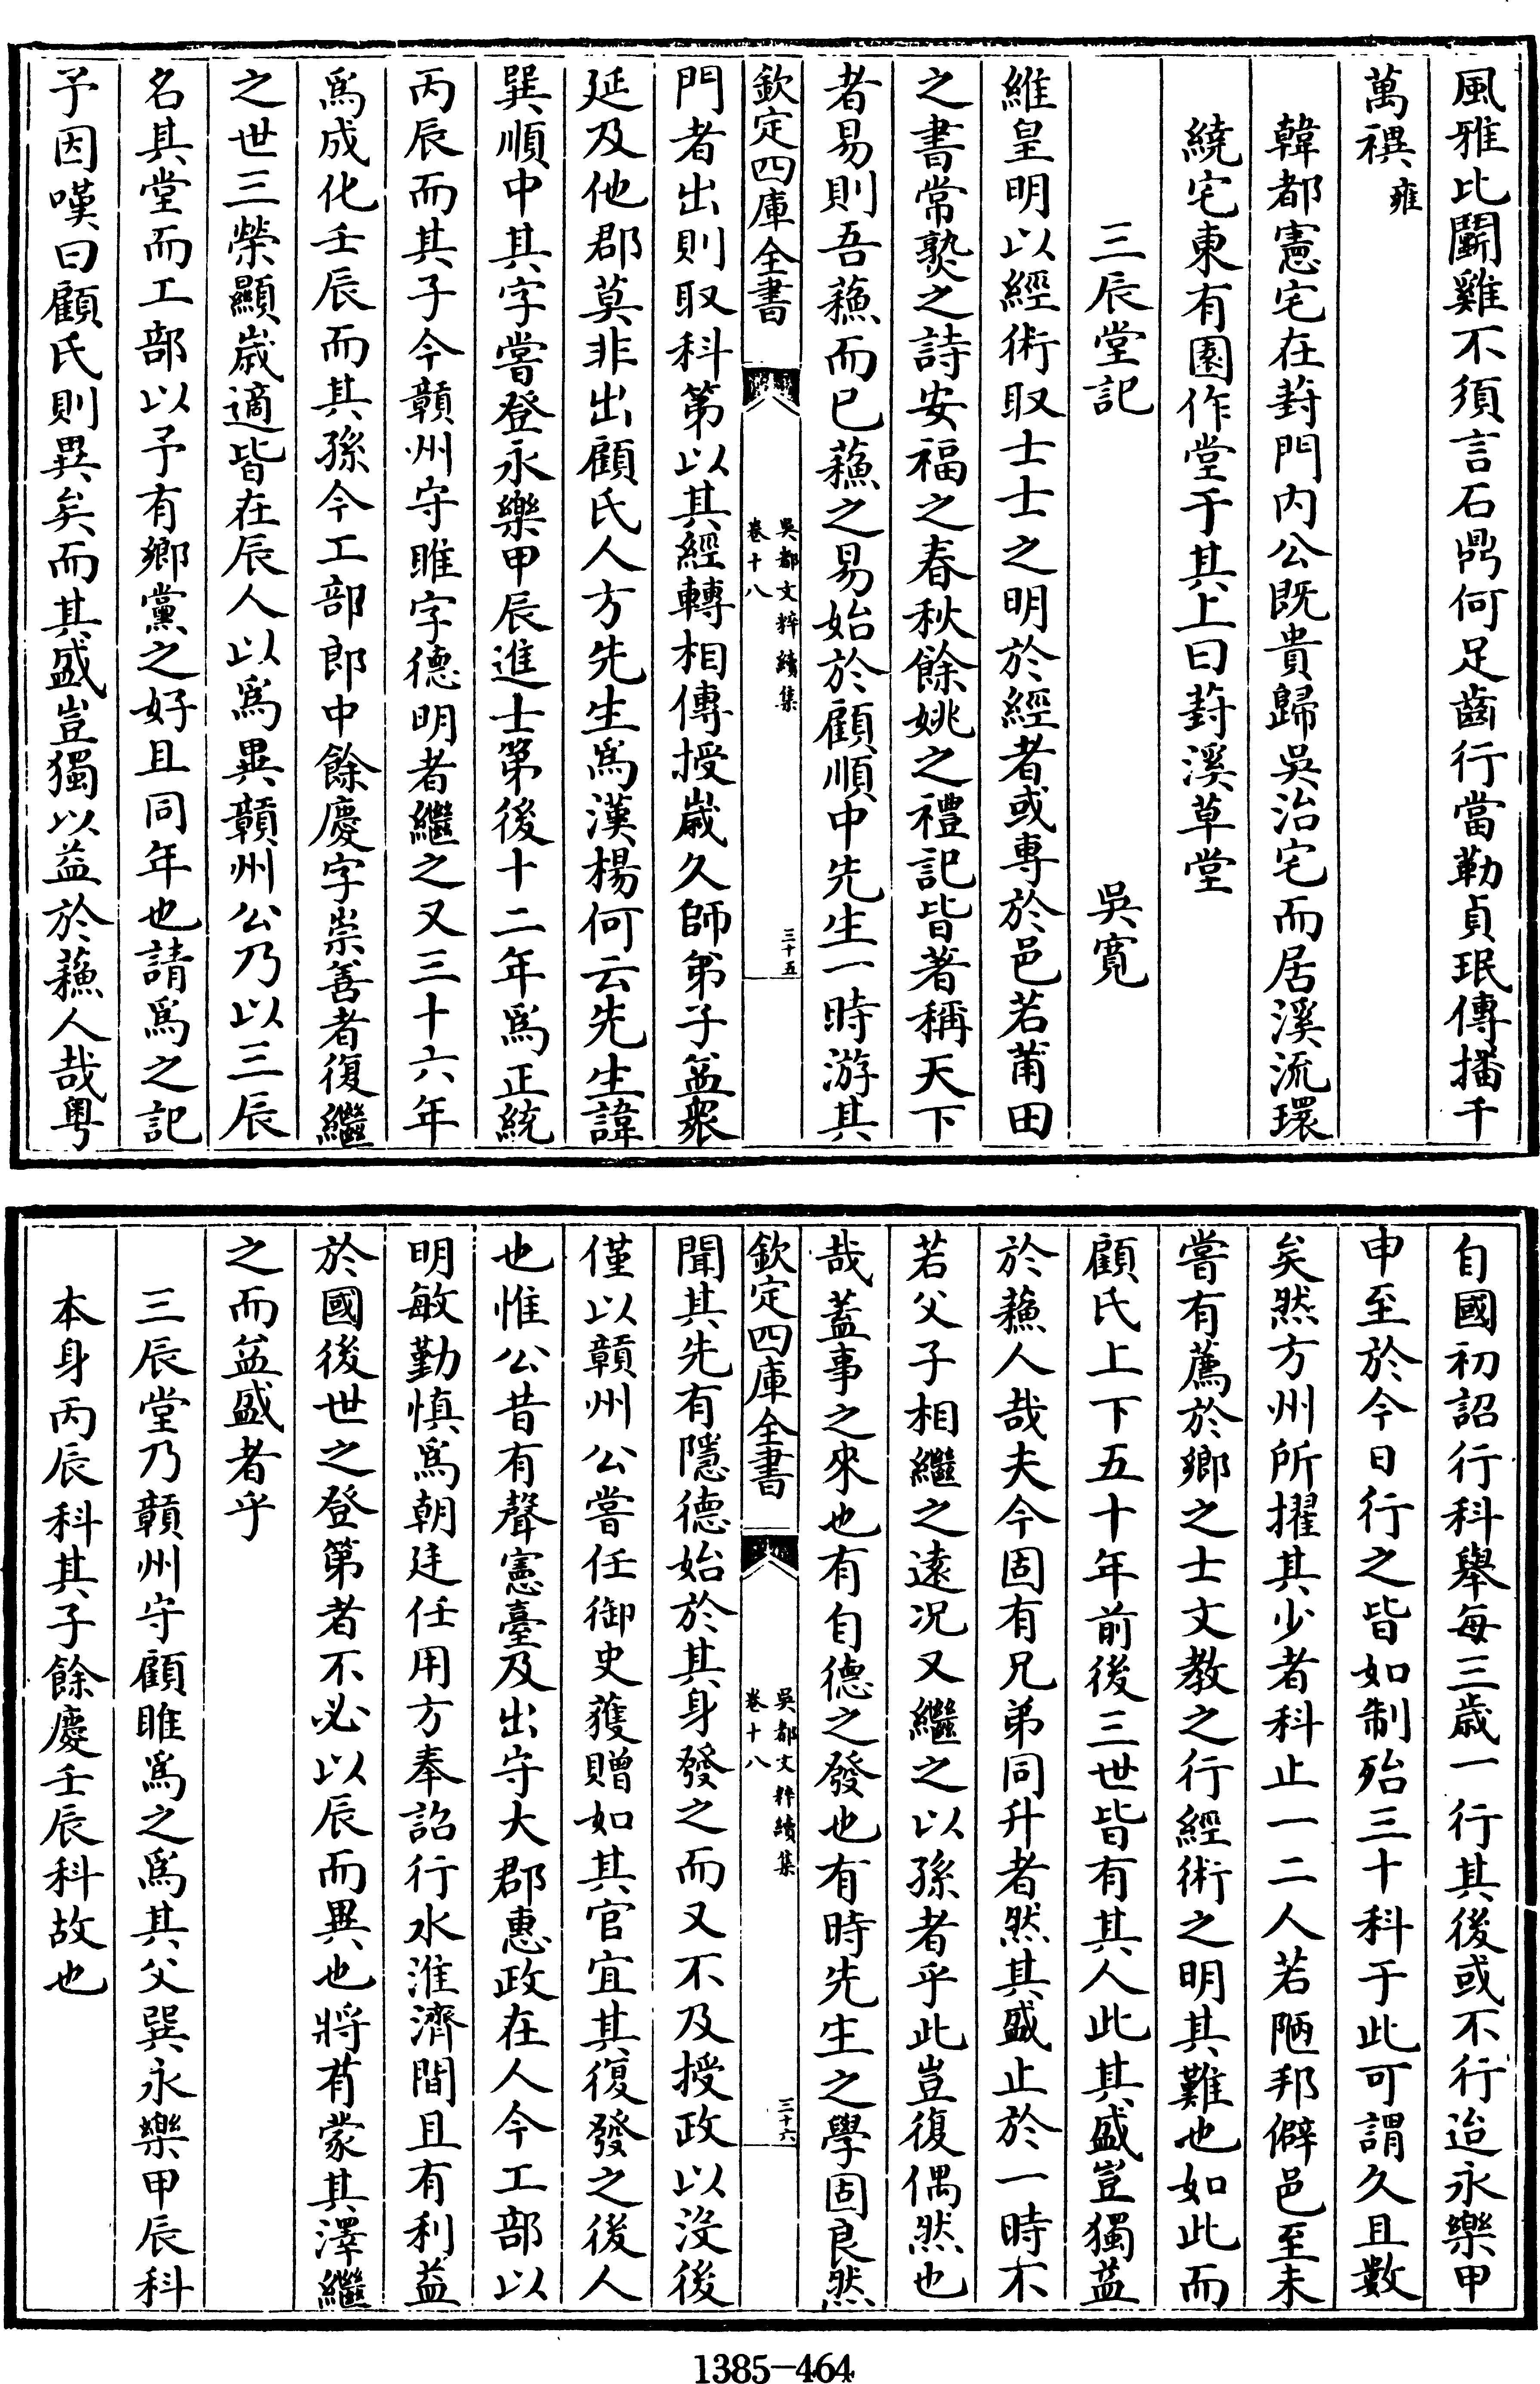 風雅比鬬雞不須言石鼎何足齒行當勒貞珉傳播千
萬禩雍
韓都憲宅在葑門内公既貴歸吳治宅而居溪流環
繞宅東有園作堂于其上曰葑溪草堂
三辰堂記 吳寛
維皇明以經術取士士之明於經者或專於邑若莆田
之書常熟之詩安福之春秋餘姚之禮記皆著稱天下
者易則吾蘓而已蘓之易始於顧順中先生一時游其
欽定四庫全書
吳都文粹續集
卷十八
三十五
門者出則取科第以其經轉相傳授嵗久師弟子益衆
延及他郡莫非出顧氏人方先生爲漢楊何云先生諱
巽順中其字嘗登永樂甲辰進士第後十二年爲正統
丙辰而其子今贛州守睢字德明者繼之又三十六年
爲成化壬辰而其孫今工部郎中餘慶字崇善者復繼
之世三榮顯嵗適皆在辰人以爲異贛州公乃以三辰
名其堂而工部以予有鄉黨之好且同年也請爲之記
予因嘆曰顧氏則異矣而其盛豈獨以益於蘓人哉粤
自國初詔行科舉每三歲一行其後或不行迨永樂甲
申至於今日行之皆如制殆三十科于此可謂久且數
矣然方州所擢其少者科止一二人若陋邦僻邑至未
嘗有薦於鄉之士文教之行經術之明其難也如此而
顧氏上下五十年前後三世皆有其人此其盛豈獨益
於蘓人哉夫今固有兄弟同升者然其盛止於一時不
若父子相繼之遠况又繼之以孫者乎此豈復偶然也
哉蓋事之來也有自德之發也有時先生之學固良然
欽定四庫全書
吳都文粹續集
卷十八
三十六
聞其先有隱德始於其身發之而又不及授政以沒後
僅以贛州公嘗任御史獲贈如其官宜其復發之後人
也惟公昔有聲憲臺及出守大郡惠政在人今工部以
明敏勤慎爲朝廷任用方奉詔行水淮濟間且有利益
於國後世之登第者不必以辰而異也將有蒙其澤繼
之而益盛者乎
三辰堂乃贛州守顧睢爲之爲其父巽永樂甲辰科
本身丙辰科其子餘慶壬辰科故也
1385-464